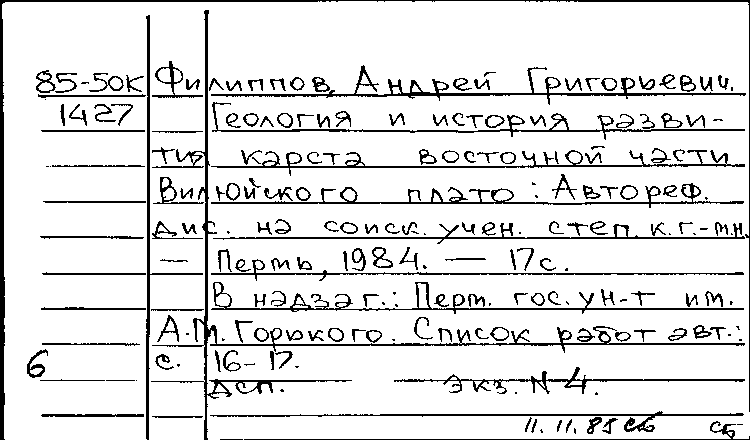 85-50к Филиппов, Андрей Григорьевич.
1427 Геология и история разви-
тия карста восточной части
Вилюйского плато: Автореф.
дис. на соиск. учен. степ. к.г.-м.н.
— Пермь, 1984. — 17с.
В надзаг.: Перм. гос. ун-т им.
А.М. Горького. Список работ авт.:
6 с. 16-17.
ДСП. экз. N 4.
11.11.85 сб сб